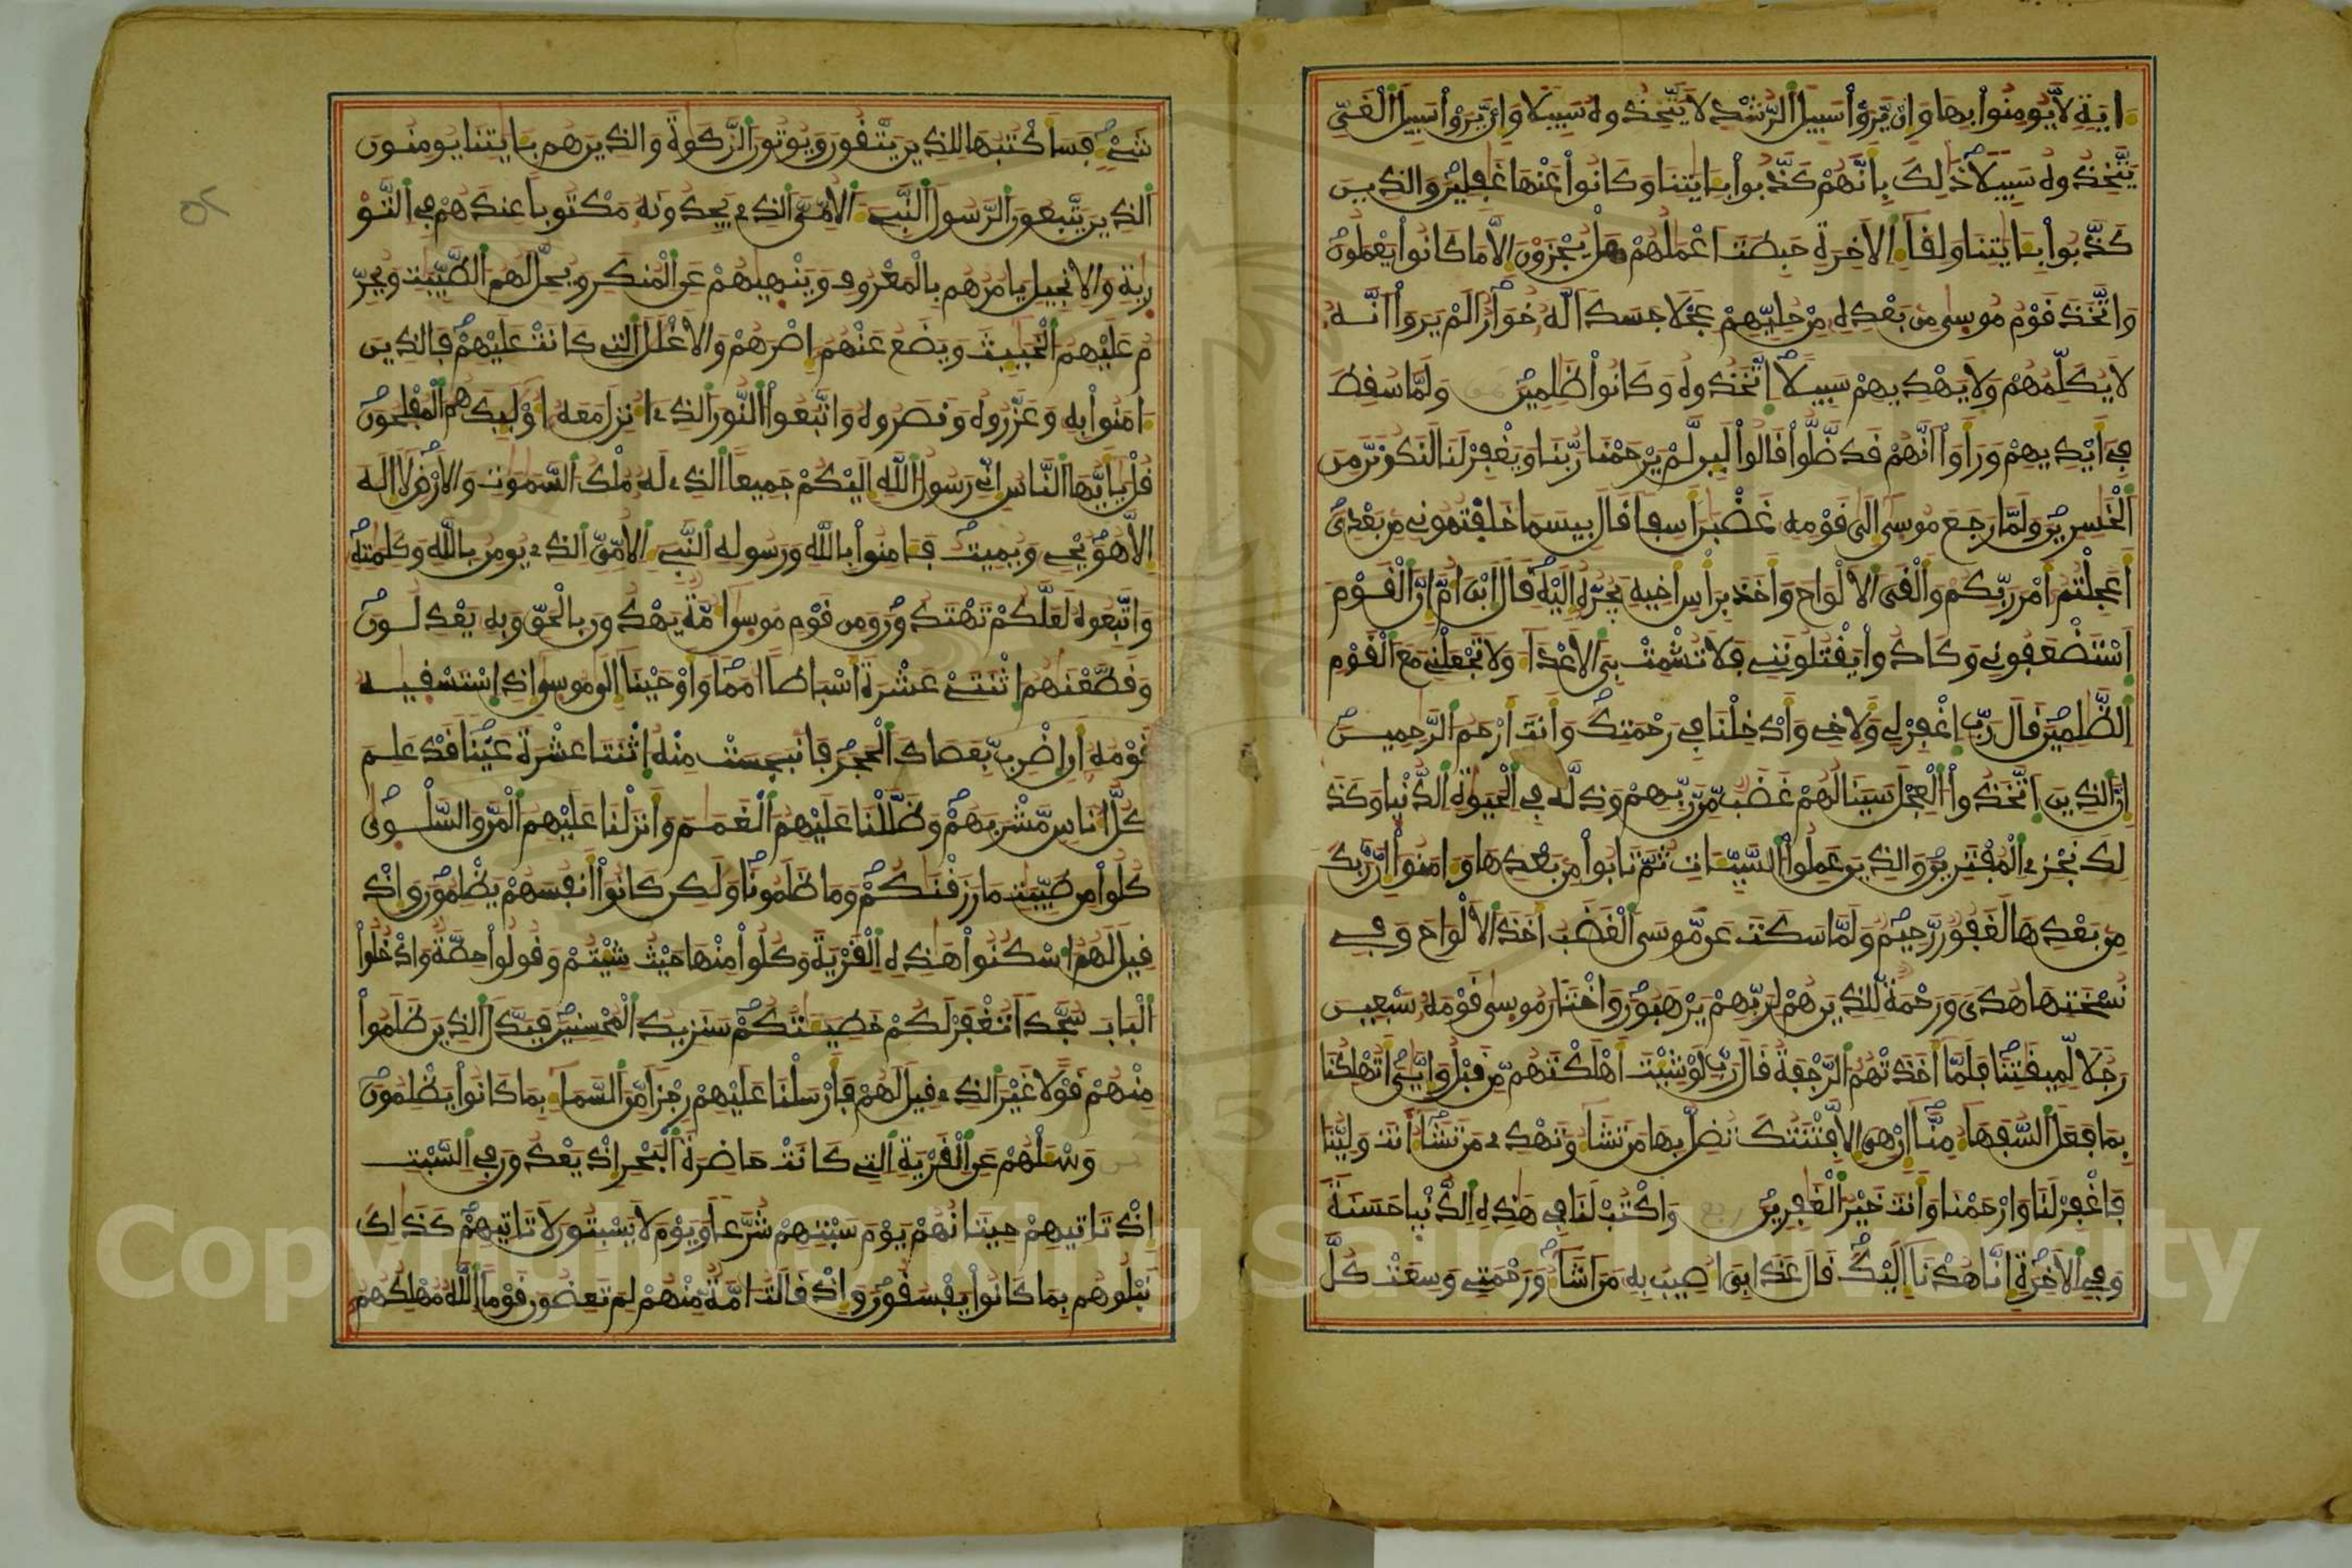 ءاية لا يومنوا بها وان يروا سبيل الرشد لا يتخذوه سبيلا وان يروا سبيل الغي
يتخذوه سبيلا ذلك بانهم كذبوا بءايتنا وكانوا عنها غفلين والذين
كذبوا بءايتنا ولقاء الاخرة حبطت اعملهم هل يجزون الا ما كانوا يعملون
واتخذ قوم موسى من بعده من حليهم عجلا جسدا له خوار الم يروا انه
لا يكلمهم ولا يهديهم سبيلا اتخذوه وكانوا ظلمين ولما سقط
في ايديهم وراوا انهم قد ضلوا قالوا لين لم يرحمنا ربنا ويغفر لنا لنكونن من
الخسرين ولما رجع موسى الى قومه غضبن اسفا قال بيسما خلفتموني من بعدي
اعجلتم امر ربكم والقى الالواح واخذ براس اخيه يجره اليه قال ابن ام ان القوم
استضعفوني وكادوا يقتلونني فلا تشمت بي الاعداء ولا تجعلني مع القوم
الظلمين قال رب اغفر لي ولاخي وادخلنا في رحمتك وانت ارحم الرحمين
ان الذين اتخذوا العجل سينالهم غضب من ربهم وذلة في الحيوة الدنيا وكذ
لك نجزي المفترين والذين عملوا السيئات ثم تابوا من بعدها وءامنوا ان ربك
من بعدها لغفور رحيم ولما سكت عن موسى الغضب اخذ الالواح وفي
نسختها هدى ورحمة للذين هم لربهم يرهبون واختار موسى قومه سبعين
رجلا لميقتنا فلما اخذتهم الرجفة قال رب لو شيت اهلكتهم من قبل وايي اتهلكنا
بما فعل السفهاء منا ان هي الا فتنتك تضل بها من تشاء وتهدي من تشاء انت ولينا
فاغفر لنا وارحمنا وانت خير الغفرين واكتب لنا في هذه الدنيا حسنة
وفي الاخرة انا هدنا اليك قال عذابي اصيب به من اشاء ورحمتي وسعت كل
شيء فساكتبها للذين يتقون ويوتون الزكوة والذين هم بءايتنا يومنون
الذين يتبعون الرسول النبيء الامي الذي يجدونه مكتوبا عندهم في التو
رية والانجيل يامرهم بالمعروف وينهيهم عن المنكر ويحل لهم الطيبت ويحر
م عليهم الخبيث ويضع عنهم اصرهم والاغلل التي كانت عليهم فالذين
ءامنوا به وعزروه ونصروه واتبعوا النور الذي انزل معه اوليك هم المفلحون
قل يايها الناس اني رسول الله اليكم جميعا الذي له ملك السموت والارض لا اله
الا هو يحي ويميت فءامنوا بالله ورسوله النبيء الامي الذي يومن بالله وكلمته
واتبعوه لعلكم تهتدون ومن قوم موسى امة يهدون بالحق وبه يعدلون
وقطعنهم اثنتي عشرة اسباطا امما واوحينا الى موسى اذ استسقيه
قومه ان اضرب بعصاك الحجر فانبجست منه اثنتا عشرة عينا قد علم
كل اناس مشربهم وظللنا عليهم الغمم وانزلنا عليهم المن والسلوى
كلوا من طيبت ما رزقنكم وما ظلمونا ولكن كانوا انفسهم يظلمون واذ
قيل لهم اسكنوا هذه القرية وكلوا منها حيث شيتم وقولوا حطة وادخلوا
الباب سجدا تغفر لكم خطيئتكم سنزيد المحسنين فبدل الذين ظلموا
منهم قولا غير الذي قيل لهم فارسلنا عليهم رجزا من السماء بما كانوا يظلمون
وسئلهم عن القرية التي كانت حاضرة البحر اذ يعدون في السبت
اذ تاتيهم حيتانهم يوم سبتهم شرعا ويوم لا يسبتون لا تاتيهم كذلك
نبلوهم بما كانوا يفسقون واذ قالت امة منهم لم تعضون قوما الله مهلكهم
Copyright © King Saud University